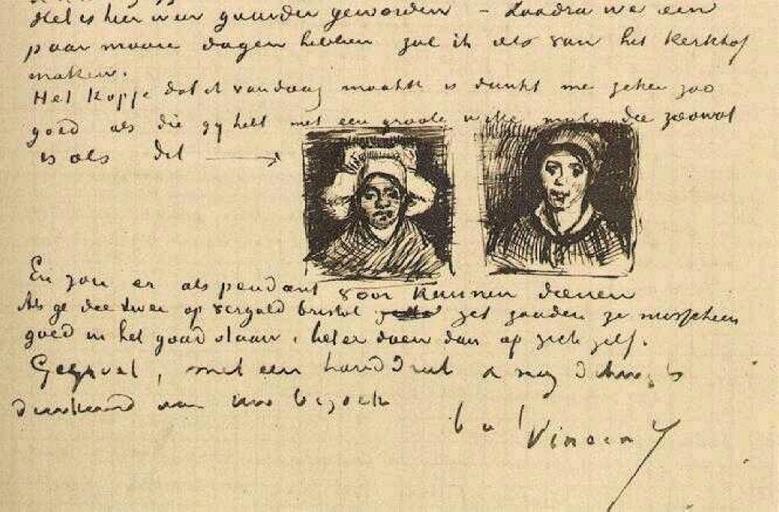 Het is hier weer guurder geworden – Zoodra we een
paar mooie dagen hebben zal ik iets van het kerkhof
maken.
Het kopje dat ik vandaag maakte is dunkt me geheel zoo
goed als die gij hebt met een groote witte muts die zoowat
is als dit
En zou er als pendant voor kunnen dienen
Als ge die twee op verguld bristol zet zouden ze misschien
goed in het goud staan, beter doen dan op zich zelf.
Gegroet, met een handdruk en nog
dankend voor uw bezoek
t. à t. Vincent